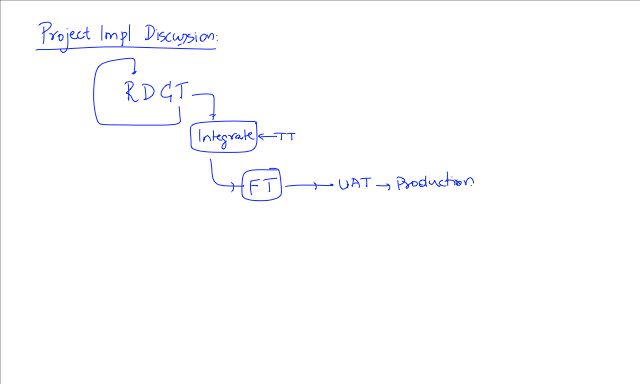 Project Impl Discussion:
RDGT
Integrate ← TT
FT → UAT → Production